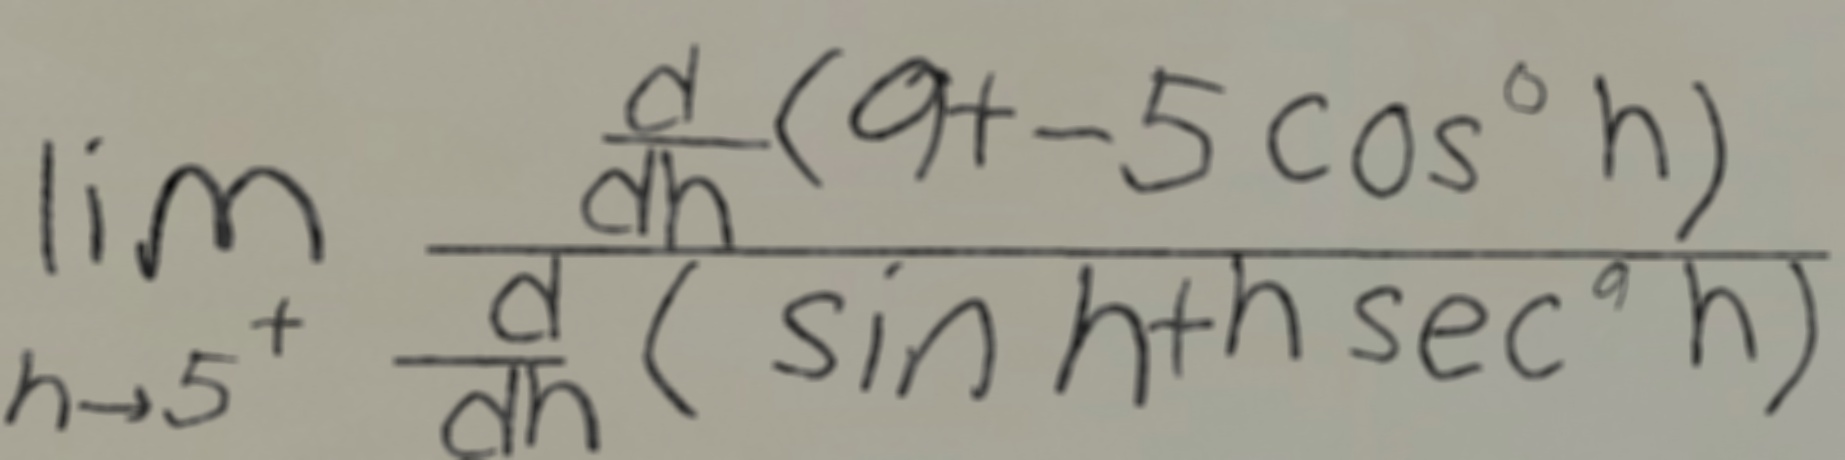 \lim_{h \to 5^{+}} \frac{\frac{d}{dh}(9+-5\cos^{0}h)}{\frac{d}{dh}(\sin h+h\sec^{9}h)}